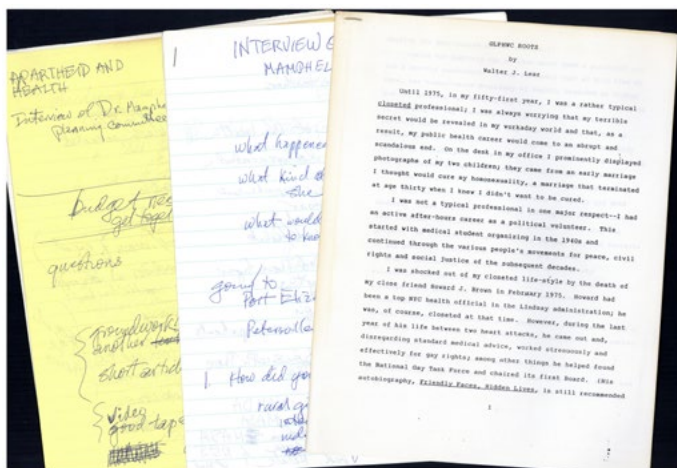 APARTHEID AND
HEALTH
Interview of Dr. Mamphe
planning committee
budget
get toget
questions
groundwork
another
short articl
video
good tape
1
INTERVIEW
MAMPHEL
what happene
what kind o
she
what would
to kno
going to
Port Eliza
Peters
1. How did you
rural
GLPHWC ROOTS
by
Walter J. Lear
Until 1975, in my fifty-first year, I was a rather typical
closeted professional; I was always worrying that my terrible
secret would be revealed in my workaday world and that, as a
result, my public health career would come to an abrupt and
scandalous end. On the desk in my office I prominently displayed
photographs of my two children; they came from an early marriage
I thought would cure my homosexuality, a marriage that terminated
at age thirty when I knew I didn't want to be cured.
I was not a typical professional in one major respect--I had
an active after-hours career as a political volunteer. This
started with medical student organizing in the 1940s and
continued through the various people's movements for peace, civil
rights and social justice of the subsequent decades.
I was shocked out of my closeted life-style by the death of
my close friend Howard J. Brown in February 1975. Howard had
been a top NYC health official in the Lindsay administration; he
was, of course, closeted at that time. However, during the last
year of his life between two heart attacks, he came out and,
disregarding standard medical advice, worked strenuously and
effectively for gay rights; among other things he helped found
the National Gay Task Force and chaired its first Board. (His
autobiography, Friendly Faces, Hidden Lives, is still recommended
1